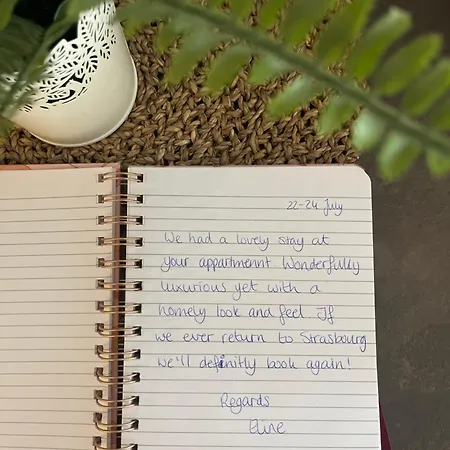 22-24 July
We had a lovely stay at
your appartmennt. Wonderfully
luxurious yet with a
homely look and feel. If
we ever return to Strasbourg
we'll definitly book again!
Regards
Eline